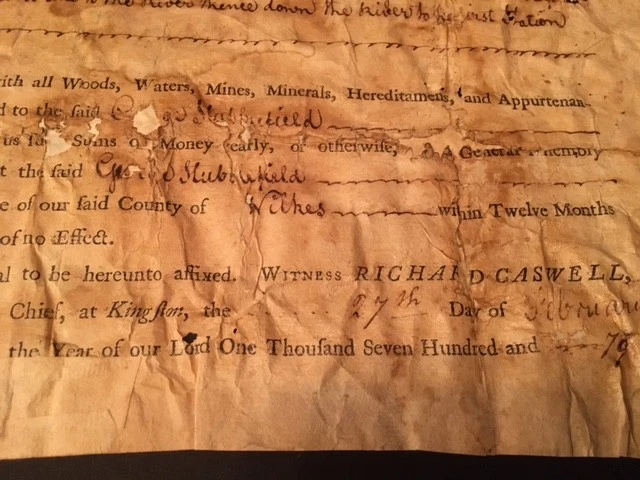 to the River thence down the River to the first Station
with all Woods, Waters, Mines, Minerals, Hereditaments, and Appurtenan-
d to the said Stubblefield
us Sums of Money yearly, or otherwise, as A General
t the said George Stubblefield
e of our said County of Wilkes within Twelve Months
of no Effect.
al to be hereunto affixed. WITNESS RICHARD CASWELL,
Chief, at Kingston, the 27th Day of Februar
the Year of our Lord One Thousand Seven Hundred and 79